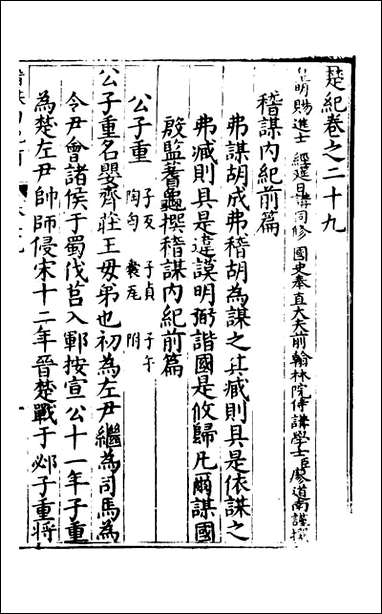 楚紀卷之二十九
皇明賜進士經筵日講同修國史奉直大夫前翰林院侍講學士臣廖道南謹撰
稽謀內紀前篇
弗謀胡成弗稽胡為謀之其臧則具是依謀之
弗臧則具是違謨明弼諧國是攸歸凡爾謀國
殷監蓍龜撰稽謀內紀前篇
公子重
子反 子貞 子午
附
公子重名嬰齊莊王母弟也初為左尹繼為司馬為
令尹會諸侯于蜀伐莒入鄆按宣公十一年子重
為楚左尹帥師侵宋十二年晉楚戰于邲子重將